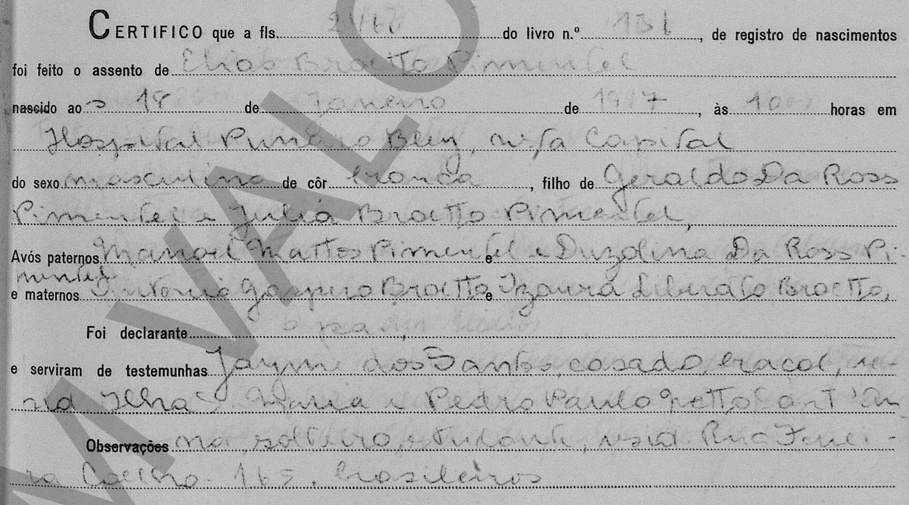 CERTIFICO que a fls. do livro n.º 131, de registro de nascimentos
foi feito o assento de Elias Broetto Pimentel
nascido aos 18 de Janeiro de 19 7, às 10 horas em
Hospital Bley, n/a Capital
do sexo masculino de côr branca, filho de Geraldo Da Ross
Pimentel e Julia Broetto Pimentel,
Avós paternos Manoel Mattos Pimentel e Duzolina Da Ross Pi-
mentel
e maternos Antonio Gaspero Broetto e Izaura Liberato Broetto,
Foi declarante o pai
e serviram de testemunhas Jayme dos Santos, casado, re-
sid Ilha Maria e Pedro Paulo Netto Sant'An
Observações na, solteiro, estudante, resid Rua
ra Coelho 165, brasileiros
M VALO